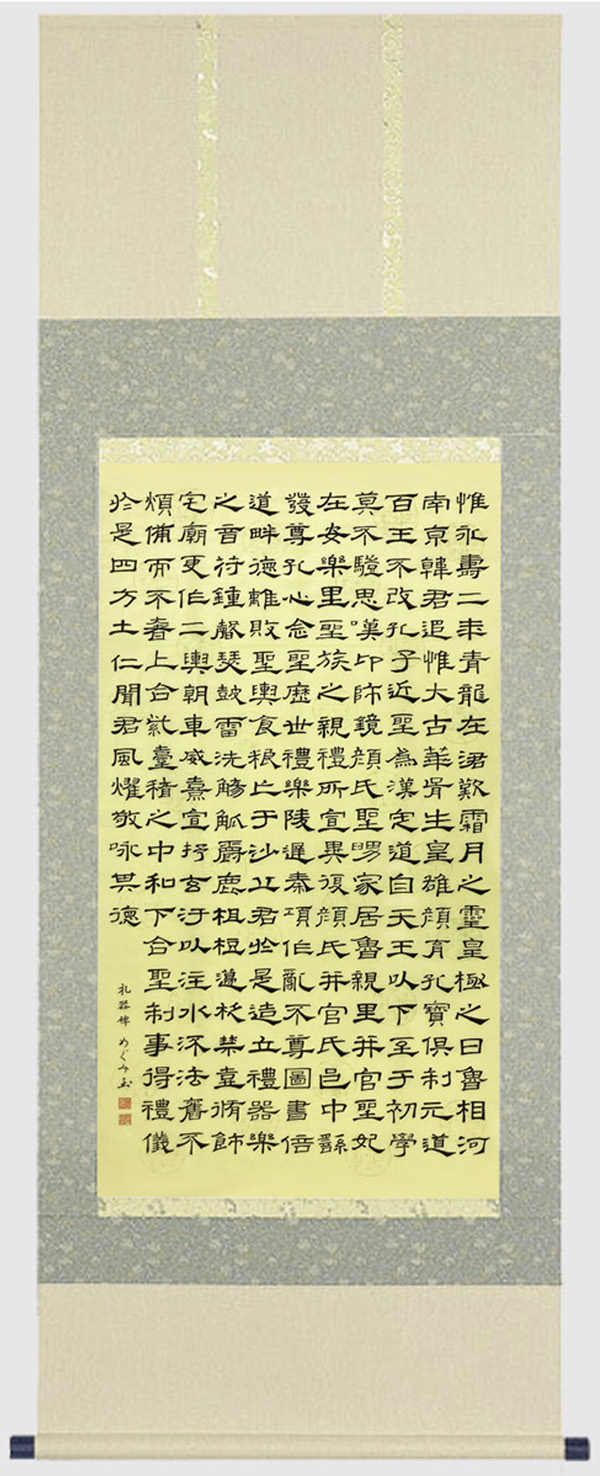 惟永壽二年青龍在涒歎霜月之靈皇極之日魯相河
南京韓君追惟大古華胥生皇雄顏育孔寶俱制元道
百王不改孔子近聖為漢定道自天王以下至于初學
莫不驥思嘆卬師鏡顏氏聖舅家居魯親里并官聖妃
在安樂里聖族之親禮所宜異復顏氏并官氏邑中繇
發尊孔心念聖歷世禮樂陵遲秦項作亂不尊圖書倍
道畔德離敗聖輿食糧亡于沙丘君於是造立禮器樂
之音符鍾磬瑟鼓雷洗觴觚爵鹿柤梪籩柉禁壺脩飾
宅廟更作二輿朝車威熹宣抒玄汙以注水流法舊不
煩備而不奢上合紫臺稽之中和下合聖制事得禮儀
於是四方土仁聞君風燿敬咏其德
礼器碑 めぐみ